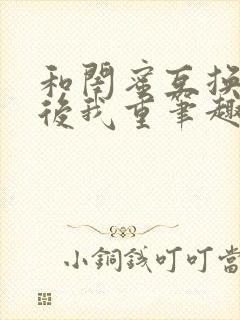 和閨蜜互換
後我重筆趣
小銅錢叮叮當